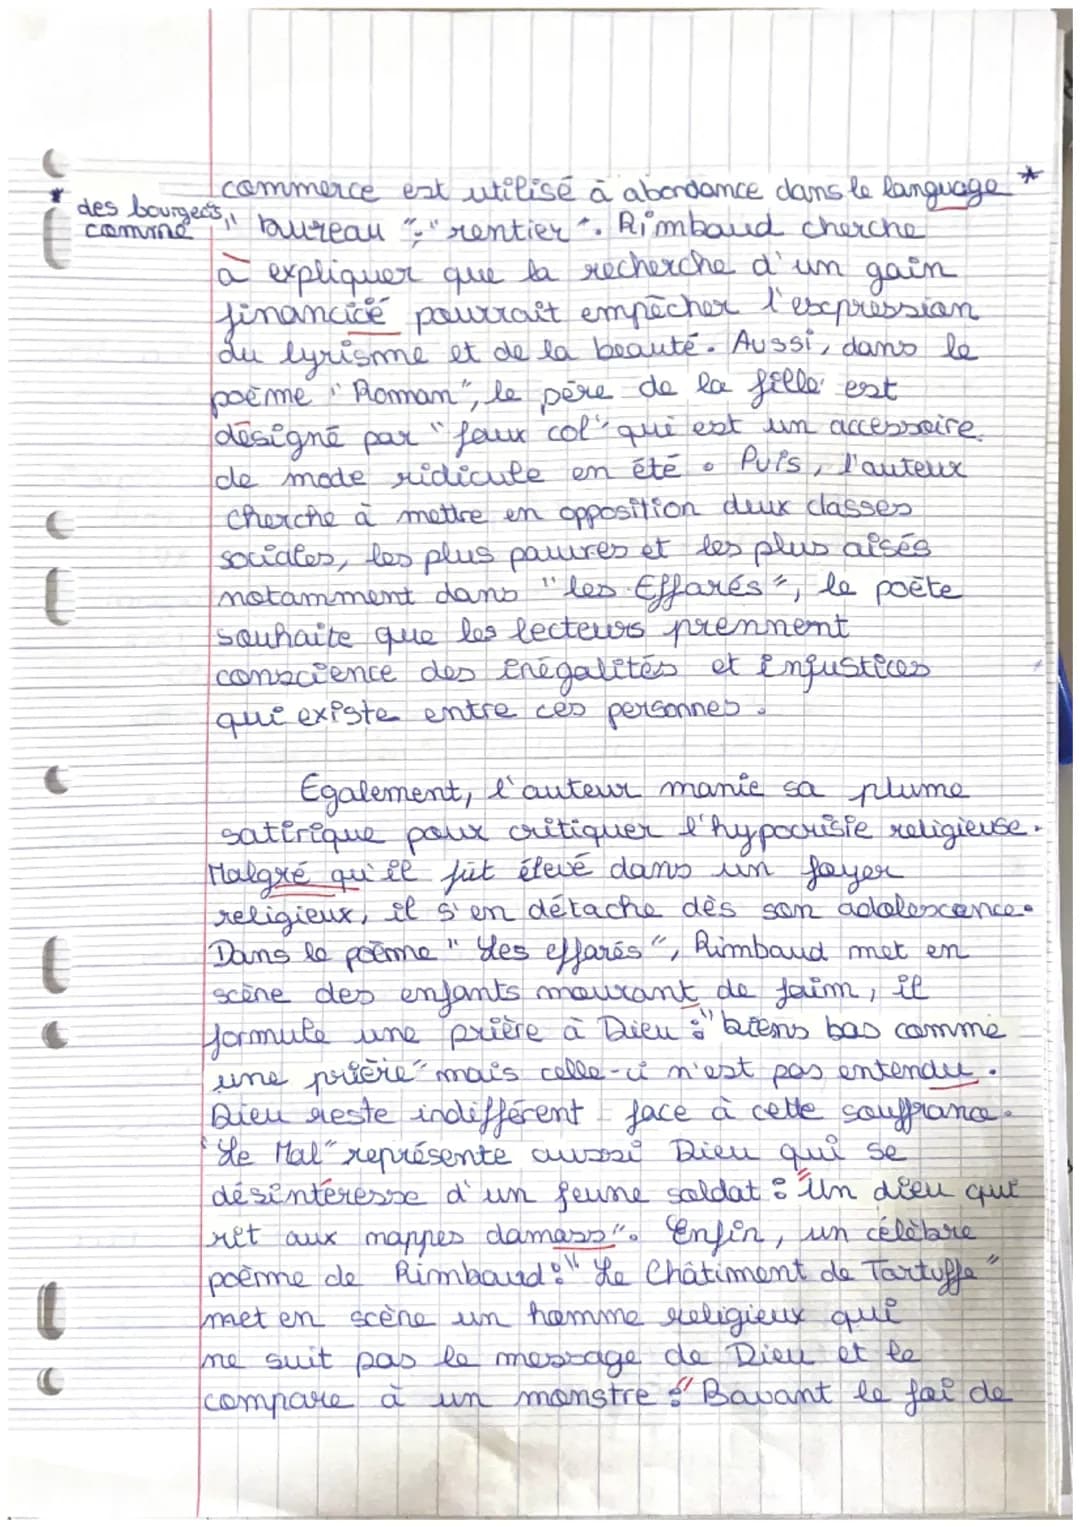 commerce est utilisé à abondance dans le language *
* des bourgeois,
comme
"bureau", "rentier". Rimbaud cherche
à expliquer que la recherche d'un gain
financié pourrait empêcher l'expression
du lyrisme et de la beauté. Aussi, dans le
poème "Roman", le père de la fille est
désigné par "faux col" qui est un accessoire
de mode ridicule en été. Puis, l'auteur
cherche à mettre en opposition deux classes
sociales, les plus pauvres et les plus aisés
notamment dans "les Effarés", le poète
souhaite que les lecteurs prennent
conscience des inégalités et injustices
qui existe entre ces personnes.
Egalement, l'auteur manie sa plume
satirique pour critiquer l'hypocrisie religieuse.
Malgré qu'il fût élevé dans un foyer
religieux, il s'en détache dès son adolescence.
Dans le poème "Les effarés", Rimbaud met en
scène des enfants mourant de faim, il
formule une prière à Dieu : "biens bas comme
une prière" mais celle-ci n'est pas entendu.
Dieu reste indifférent face à cette souffrance.
"Le Mal" représente aussi Dieu qui se
désintéresse d'un jeune soldat : "Un dieu qui
rit aux nappes damass". Enfin, un célèbre
poème de Rimbaud : "Le Châtiment de Tartuffe"
met en scène un homme religieux qui
ne suit pas le message de Dieu et le
compare à un monstre : "Bavant le foi de